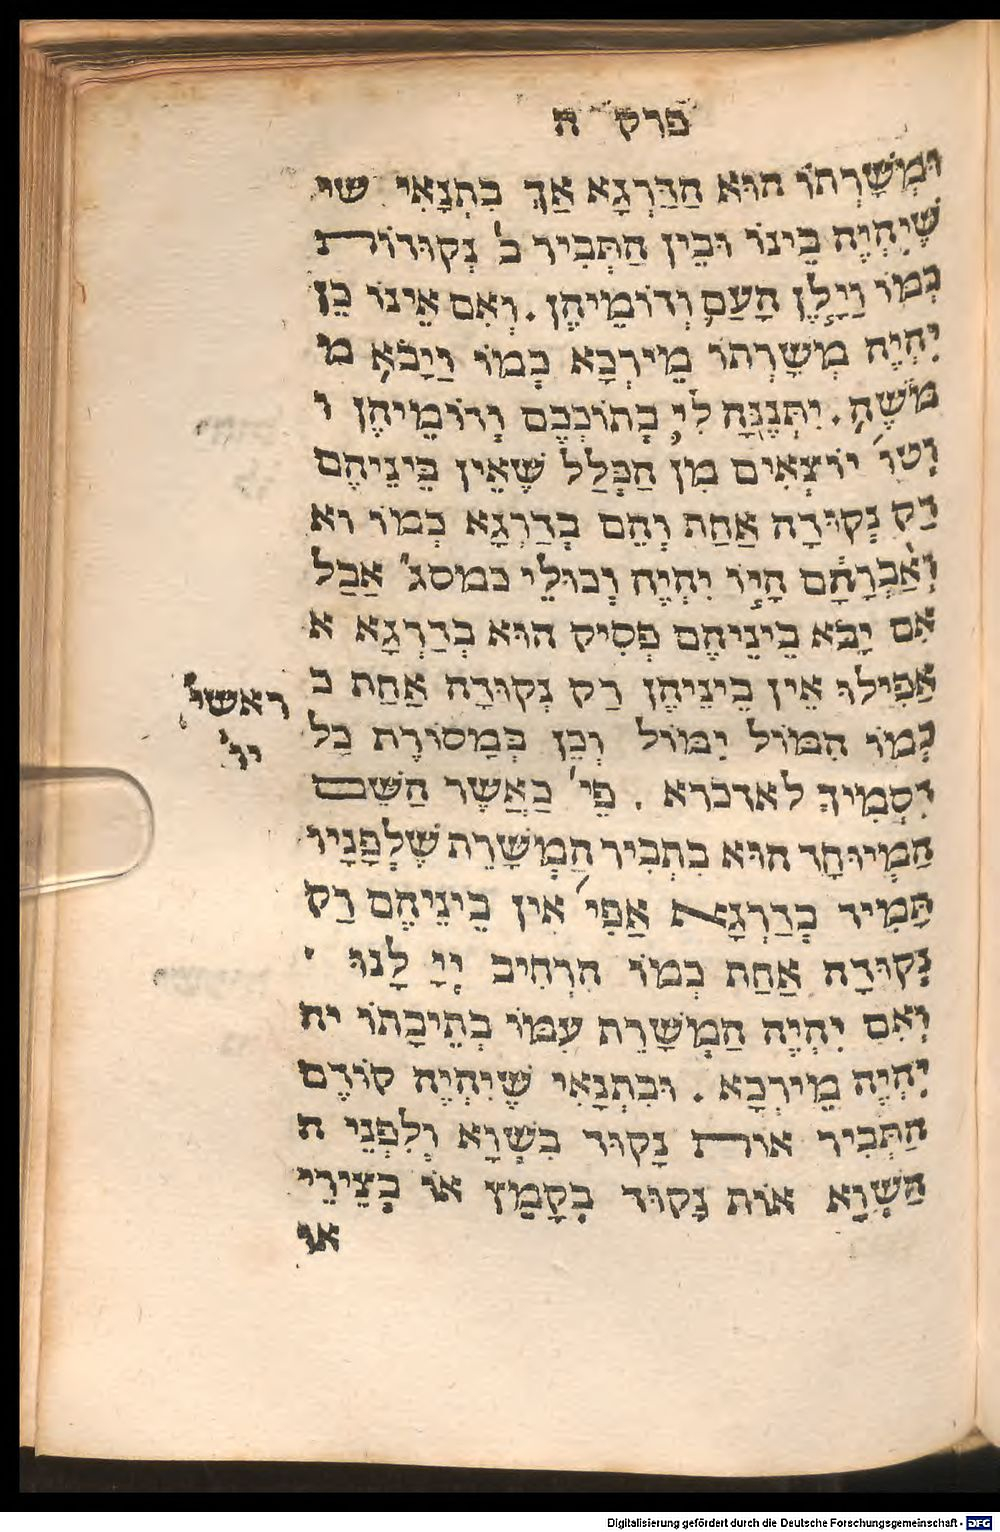 פרק ח
וּמְשָׁרְתוֹ הוּא הַדַּרְגָא אַךְ בִּתְנָאִי שי
שֶׁיִהְיֶה בֵּינוֹ וּבֵין הַתְּבִיר ב' נְקוּדוֹת
כְּמוֹ וַיָּלֶן הָעַם וְדוֹמֵיהֶן . וְאִם אֵינוֹ כֵן
יִהְיֶה מְשָׁרְתוֹ מֵירְכָא כְּמוֹ וַיָּבֹא מ
מֹשֶׁה . יִתְּנֶנָּה לִי בְּתוֹכְכֶם וְדוֹמֵיהֶן ו
וְטוּ' יוֹצְאִים מִן הַכְּלַל שֶׁאֵין בֵּינֵיהֶם
רַק נְקוּדָה אַחַת וְהֵם בְּדַרְגָא כְּמוֹ וא
וְאַבְרָהָם הָיוֹ יִהְיֶה וְכוּלֵי במסג' אֲבָל
אִם יָבֹא בֵינֵיהֶם פְּסִיק הוּא בְּדַרְגָא א
אֲפִילוּ אֵין בֵּינֵיהֶן רַק נְקוּדָה אַחַת כ
כְּמוֹ הִמּוֹל יִמּוֹל וְכֵן בְּמָסוֹרֶת כָל
דִסְמִיךְ לאדכרא . פֵי' כַאֲשֶׁר הַשֵּׁם
הַמְיוּחָד הוּא בִתְבִיר הַמְשָׁרֵת שֶׁלְּפָנָיו
תָּמִיד בְּדַרְגָא אֲפִי' אֵין בֵּינֵיהֶם רַק
נְקוּדָה אַחַת כְּמוֹ הִרְחִיב יְיָ לָנוּ '
וְאִם יִהְיֶה הַמְשָׁרֵת עִמּוֹ בְּתֵיבָתוֹ יה
יִהְיֶה מֵירְכָא . וּבִתְנָאִי שֶׁיִהְיֶה קוֹדֶם
הַתְּבִיר אוֹת נָקוּד בִּשְׁוָא וְלִפְנֵי ה
הַשְׁוָא אוֹת נָקוּד בְּקָמַץ אוֹ בְּצֵירֵי
או
ראשי'
יו'